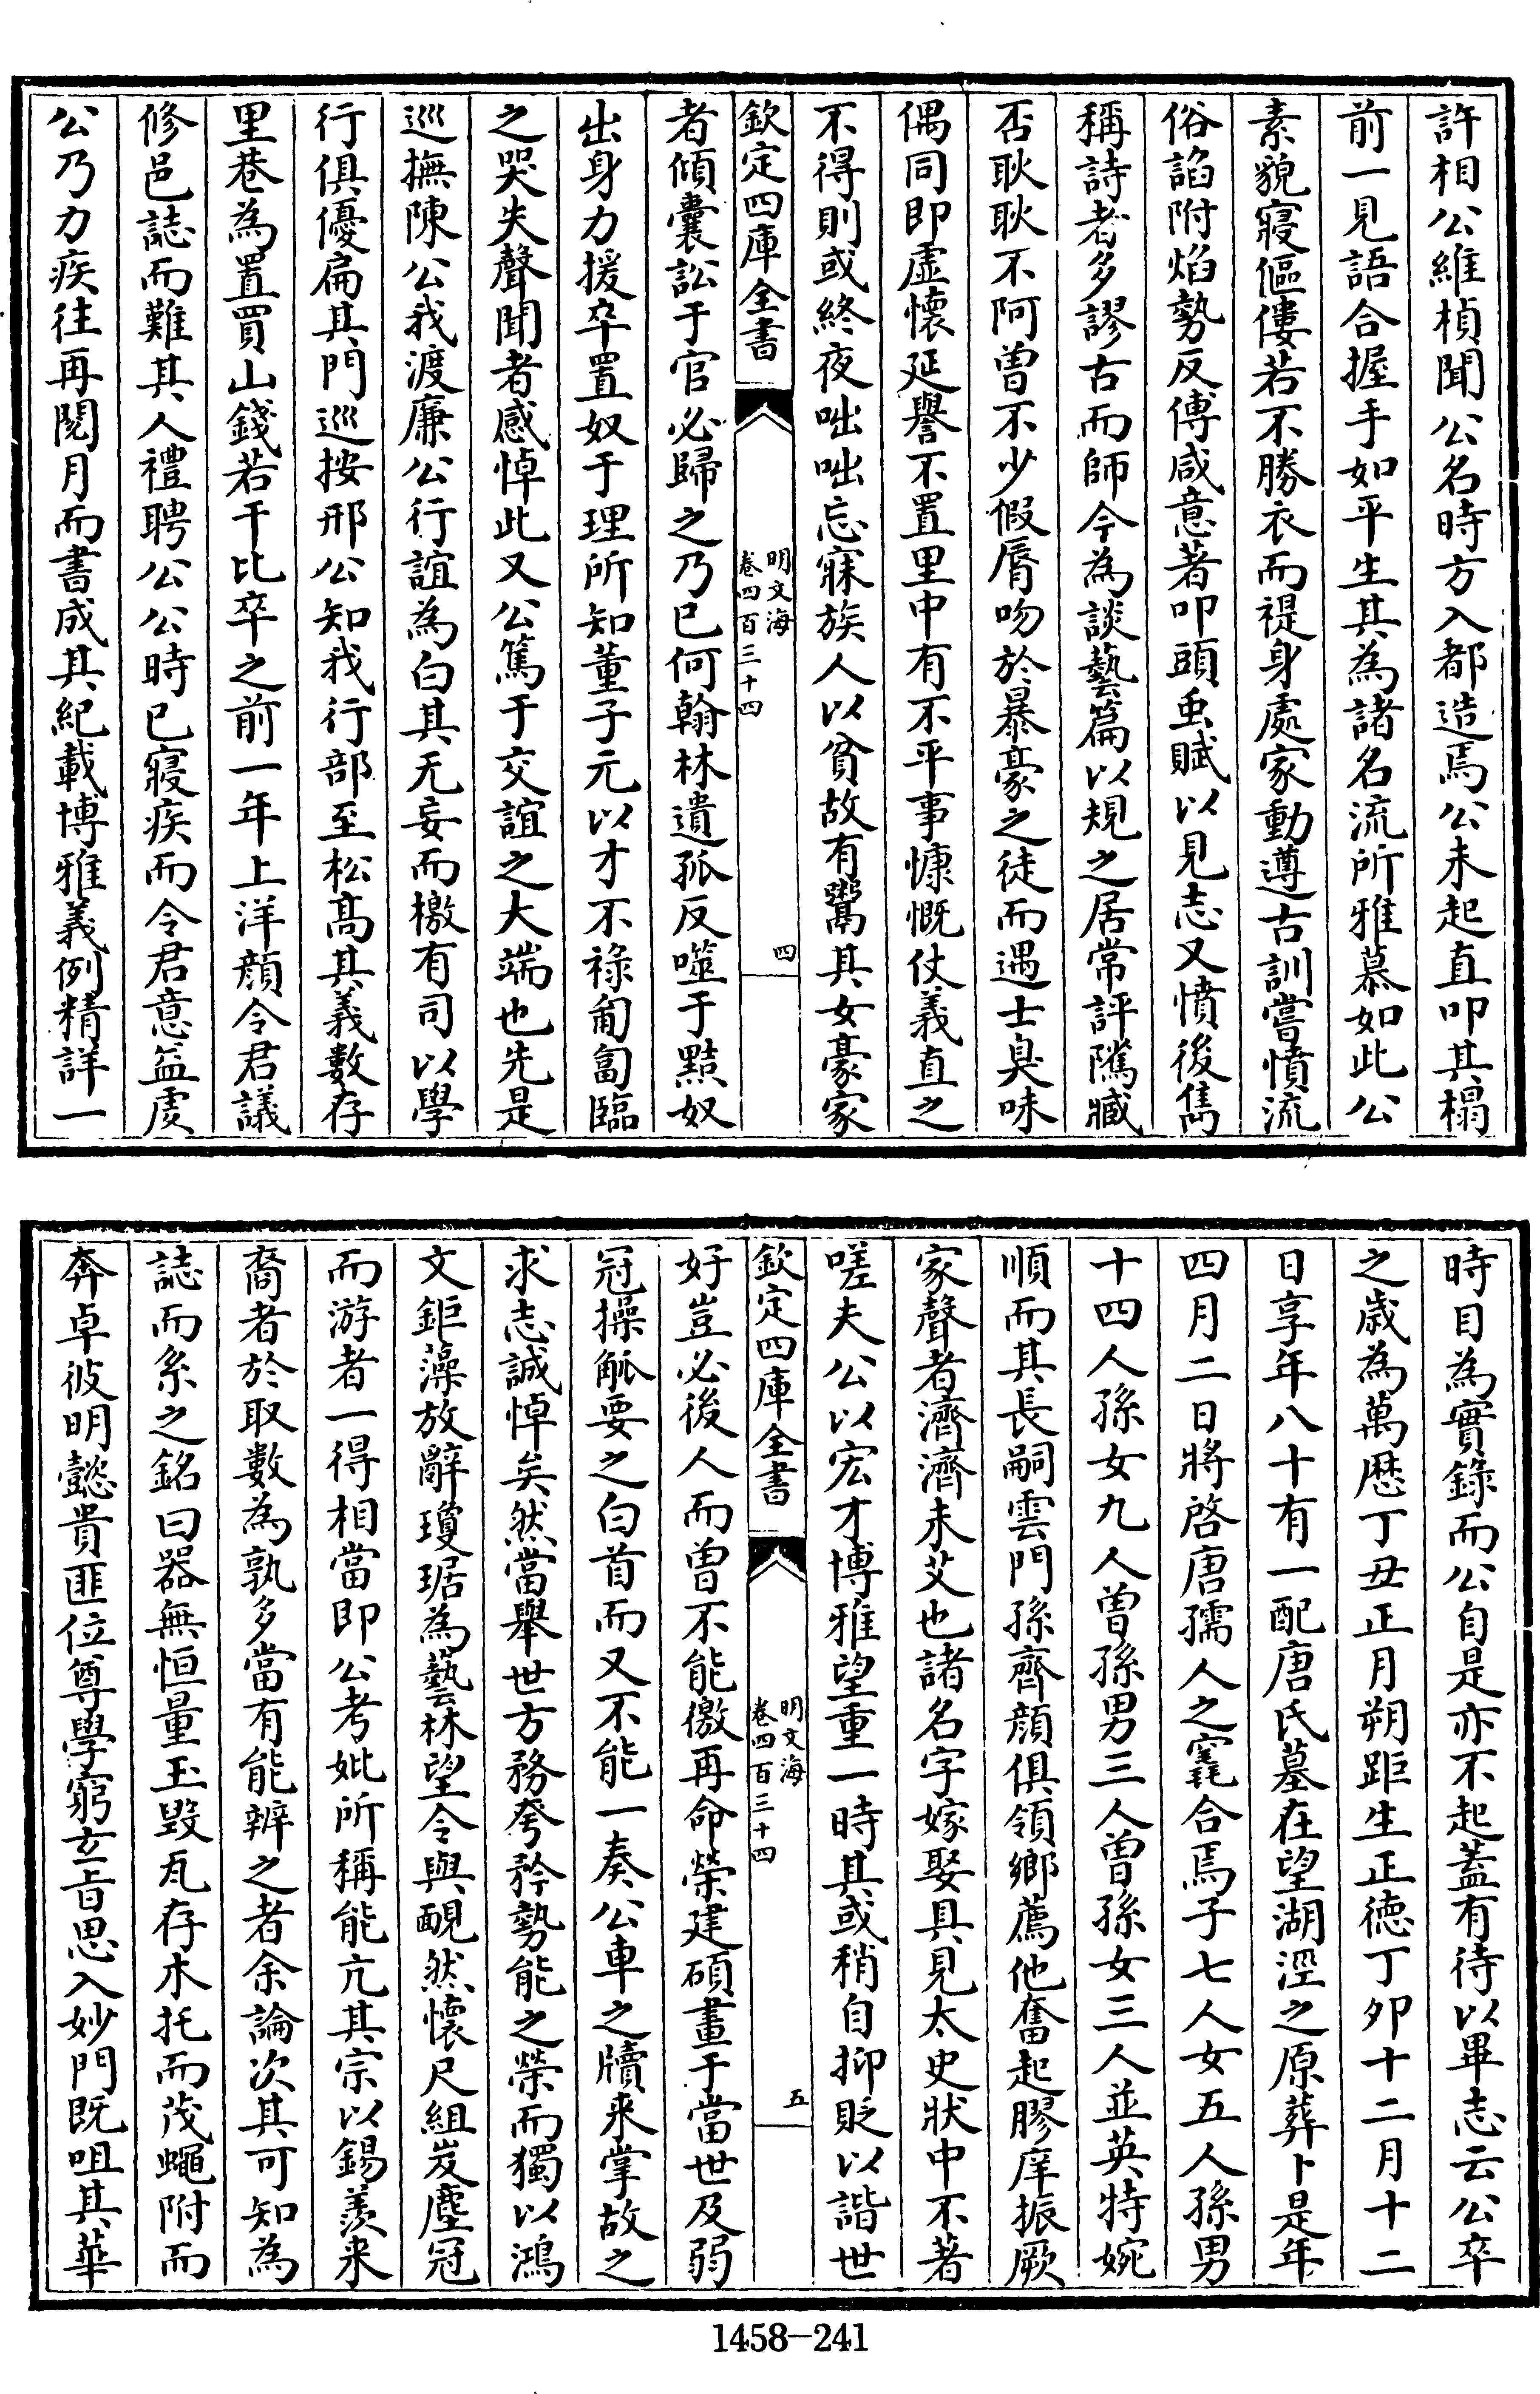 許相公維楨聞公名時方入都造焉公未起直叩其榻
前一見語合握手如平生其為諸名流所雅慕如此公
素貌寢傴僂若不勝衣而禔身處家動遵古訓嘗憤流
俗諂附焰勢反傅咸意著叩頭虫賦以見志又憤後雋
稱詩者多謬古而師今為談藝篇以規之居常評隲臧
否耿耿不阿曾不少假脣吻於暴豪之徒而遇士臭味
偶同即虛懷延譽不置里中有不平事慷慨仗義直之
不得則或終夜咄咄忘寐族人以貧故有鬻其女豪家
欽定四庫全書
明文海
卷四百三十四
四
者傾囊訟于官必歸之乃已何翰林遺孤反噬于黠奴
出身力援卒置奴于理所知董子元以才不祿匍匐臨
之哭失聲聞者感悼此又公篤于交誼之大端也先是
巡撫陳公我渡廉公行誼為白其无妄而檄有司以學
行俱優扁其門巡按邢公知我行部至松高其義數存
里巷為置買山錢若干比卒之前一年上洋顏令君議
修邑誌而難其人禮聘公公時已寢疾而令君意益虔
公乃力疾往再閱月而書成其紀載博雅義例精詳一
時目為實錄而公自是亦不起蓋有待以畢志云公卒
之歲為萬厯丁丑正月朔距生正德丁夘十二月十二
日享年八十有一配唐氏墓在望湖涇之原葬卜是年
四月二日將啓唐孺人之窀合焉子七人女五人孫男
十四人孫女九人曾孫男三人曾孫女三人並英特婉
順而其長嗣雲門孫齊顏俱領鄉薦他奮起膠庠振厥
家聲者濟濟未艾也諸名字嫁娶具見太史狀中不著
嗟夫公以宏才博雅望重一時其或稍自抑貶以諧世
欽定四庫全書
明文海
卷四百三十四
五
好豈必後人而曾不能徼再命榮建碩畫于當世及弱
冠操觚要之白首而又不能一奏公車之牘来掌故之
求志誠悼矣然當舉世方務夸矜勢能之榮而獨以鴻
文鉅藻放辭瓊琚為藝林望令與靦然懷尺組岌塵冠
而游者一得相當即公考妣所稱能亢其宗以錫羨来
裔者於取數為孰多當有能辨之者余論次其可知為
誌而系之銘曰器無恒量玉毁瓦存木托而茂蠅附而
奔卓彼明懿貴匪位尊學窮玄旨思入妙門既咀其華
1458-241